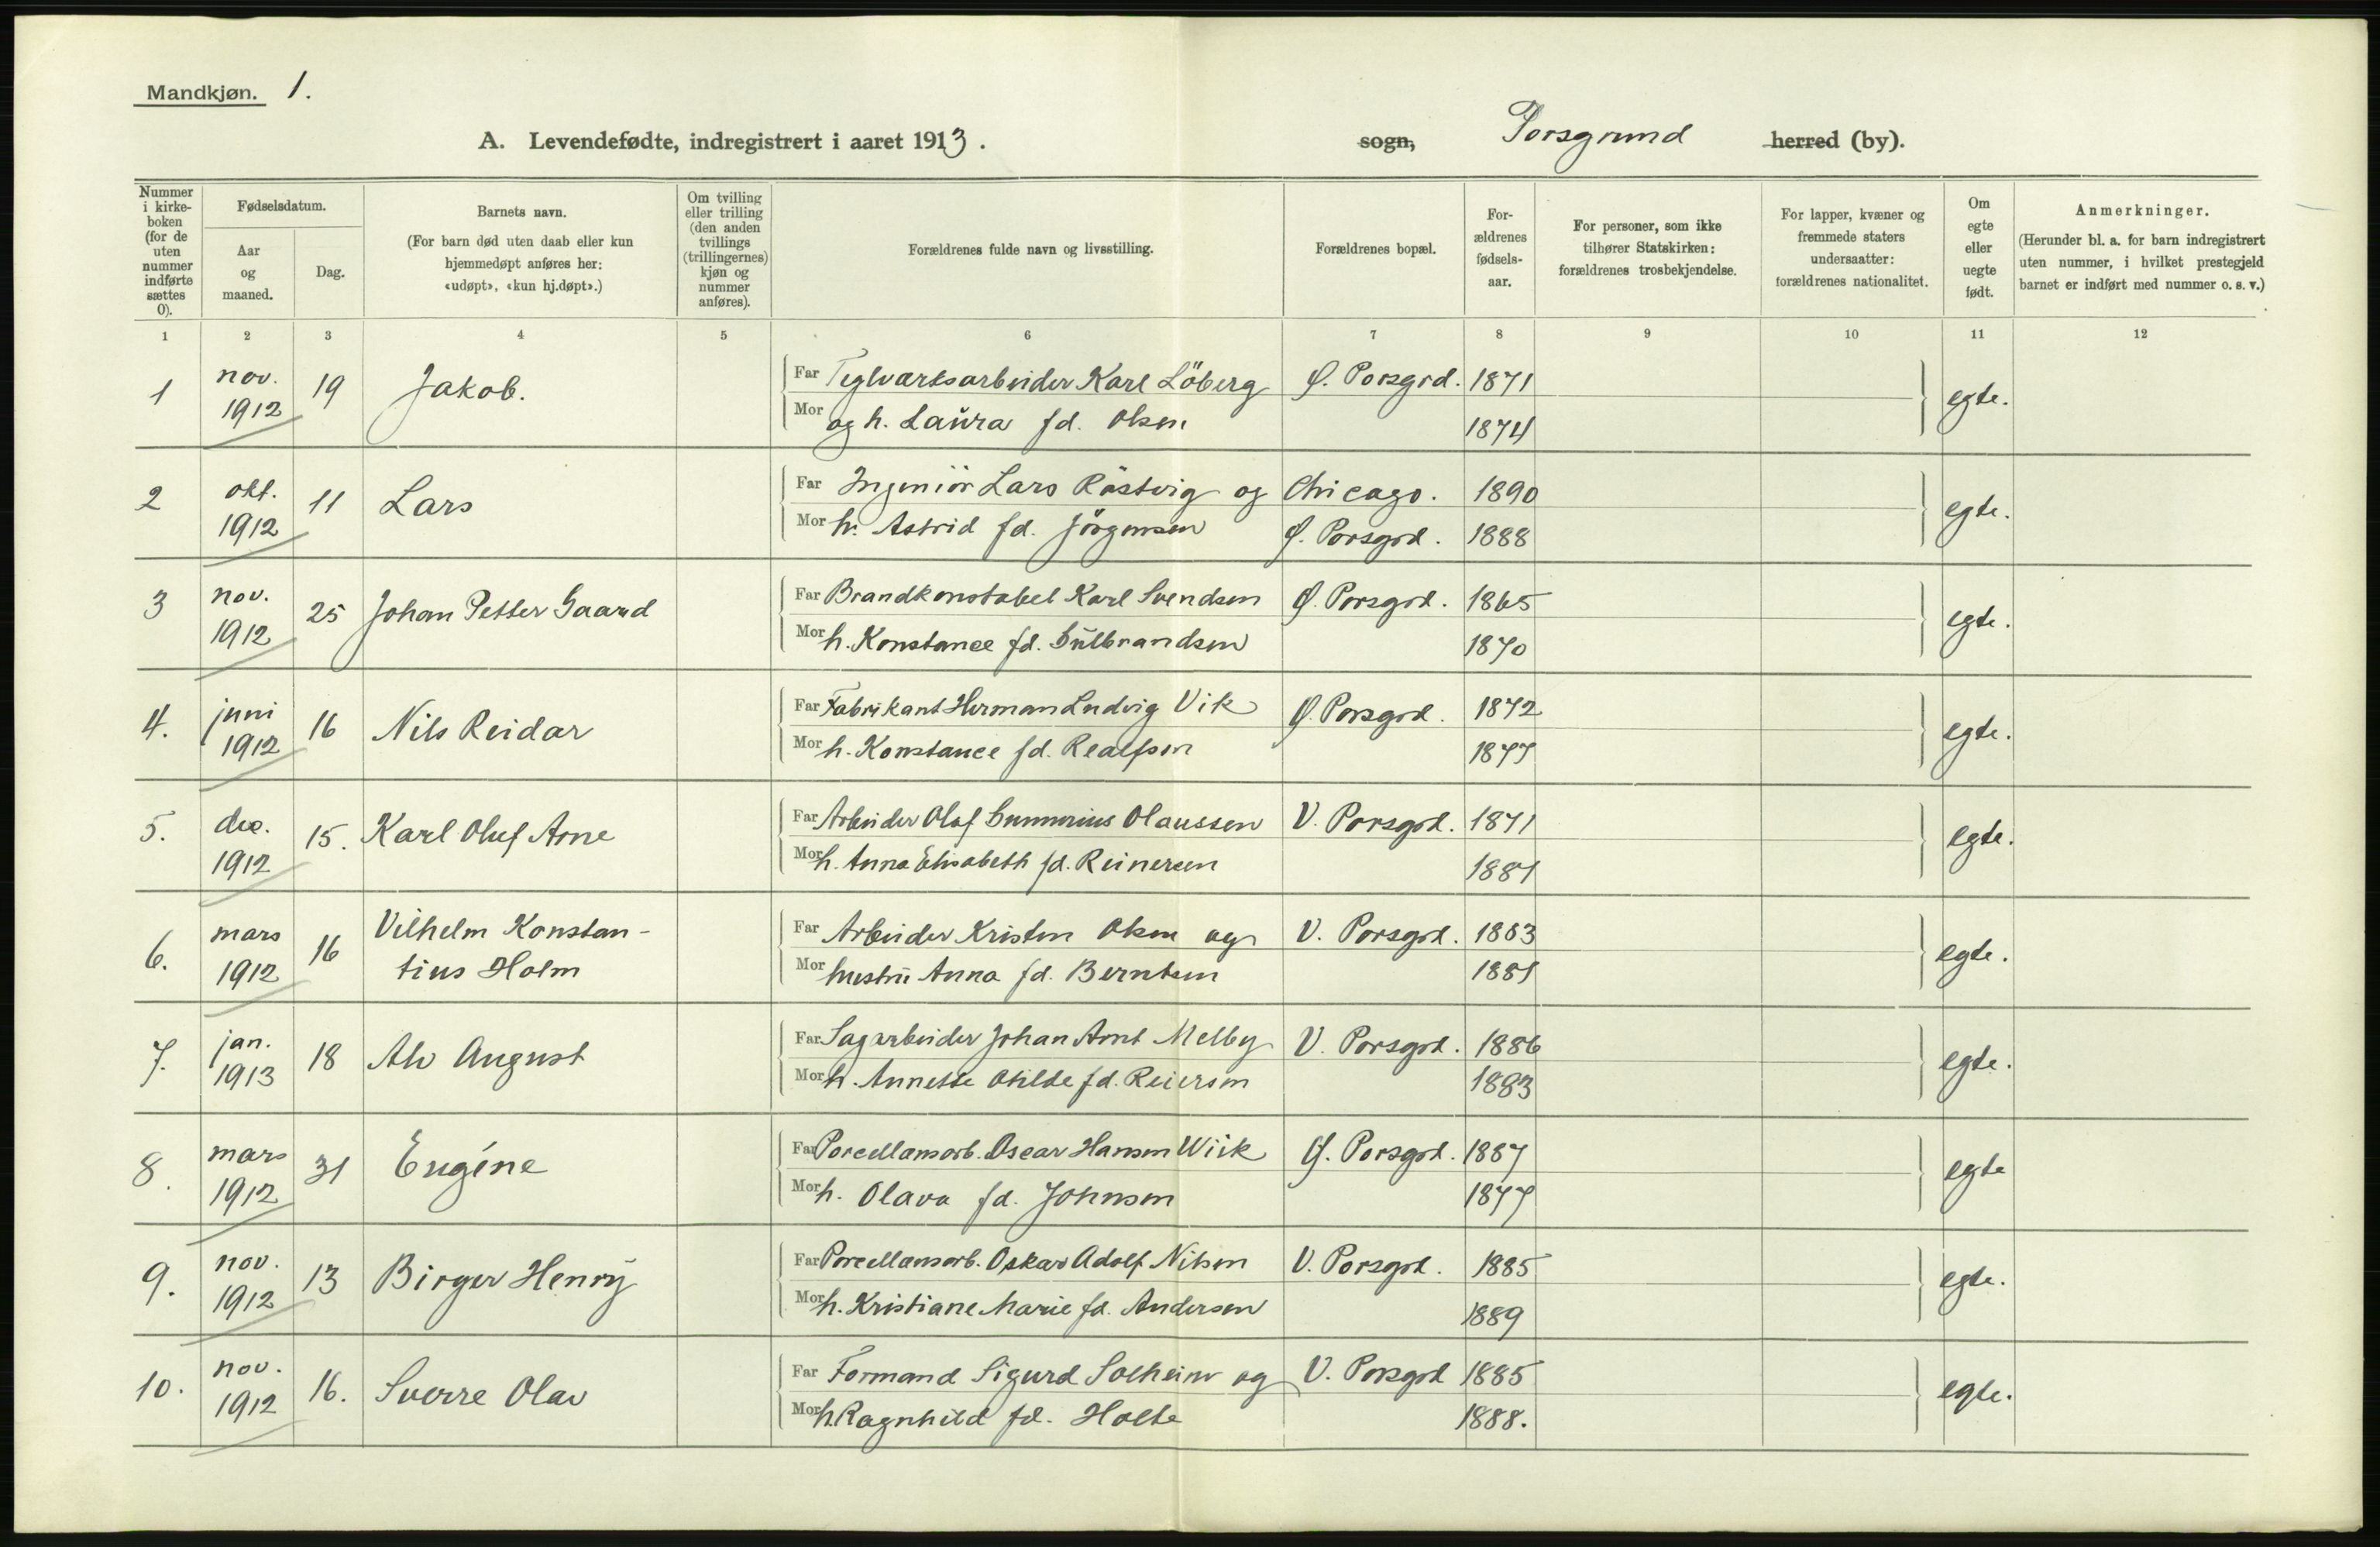 Mandkjøn. 1.
A. Levendefødte, indregistrert i aaret 1913.
sogn, Porsgrund herred (by).
Nummer i kirkeboken (for de uten nummer indførte sættes 0).
Fødselsdatum.
Aar og maaned.
Dag.
Barnets navn.
(For barn død uten daab eller kun hjemmedøpt anføres her: «udøpt», «kun hj.døpt».)
Om tvilling eller trilling (den anden tvillings (trillingernes) kjøn og nummer anføres).
Forældrenes fulde navn og livsstilling.
Forældrenes bopæl.
Forældrenes fødselsaar.
For personer, som ikke tilhører Statskirken: forældrenes trosbekjendelse.
For lapper, kvæner og fremmede staters undersaatter: forældrenes nationalitet.
Om egte eller uegte født.
Anmerkninger.
(Herunder bl. a. for barn indregistrert uten nummer, i hvilket prestegjeld barnet er indført med nummer o. s. v.)
1 2 3 4 5 6 7 8 9 10 11 12
1 nov. 1912 19 Jakob. Far Teglværksarbeider Karl Löberg Ø. Porsgrd. 1871 egte.
Mor og h. Laura fd. Olsen 1874
2 okt. 1912 11 Lars Far Ingeniör Lars Röstvig og Chicago. 1890 egte.
Mor h. Astrid fd. Jörgensen Ø. Porsgrd. 1888
3 nov. 1912 25 Johan Petter Gaard Far Brandkonstabel Karl Svendsen Ø. Porsgrd. 1865 egte.
Mor h. Konstance fd. Gulbrandsen 1870
4. juni 1912 16 Nils Reidar Far Fabrikant Herman Ludvig Vik Ø. Porsgrd. 1872 egte.
Mor h. Konstance fd. Realfsen 1877
5. dec. 1912 15. Karl Oluf Arne Far Arbeider Olaf Gunnerius Olaussen V. Porsgrd. 1871 egte.
Mor h. Anna Elisabeth fd. Reinersen 1881
6. mars 1912 16 Vilhelm Konstan- Far Arbeider Kristen Olsen og V. Porsgrd. 1883 egte.
tius Holm Mor hustru Anna fd. Berntsen 1881
7. jan. 1913 18 Alv August Far Sagarbeider Johan Arnt Melby V. Porsgrd. 1886 egte.
Mor h. Annette Otilde fd. Reiersen 1883
8. mars 1912 31 Eugéne Far Porcellansarb. Oscar Hansen Wiik Ø. Porsgrd. 1887 egte
Mor h. Olava fd. Johnsen 1877
9. nov. 1912 13 Birger Henry Far Porcellansarb. Oskar Adolf Nilsen V. Porsgrd. 1885 egte.
Mor h. Kristiane Marie fd. Andersen 1889
10. nov. 1912 16. Sverre Olav Far Formand Sigurd Solheim og V. Porsgrd 1885 egte.
Mor h. Ragnhild fd. Holte 1888.